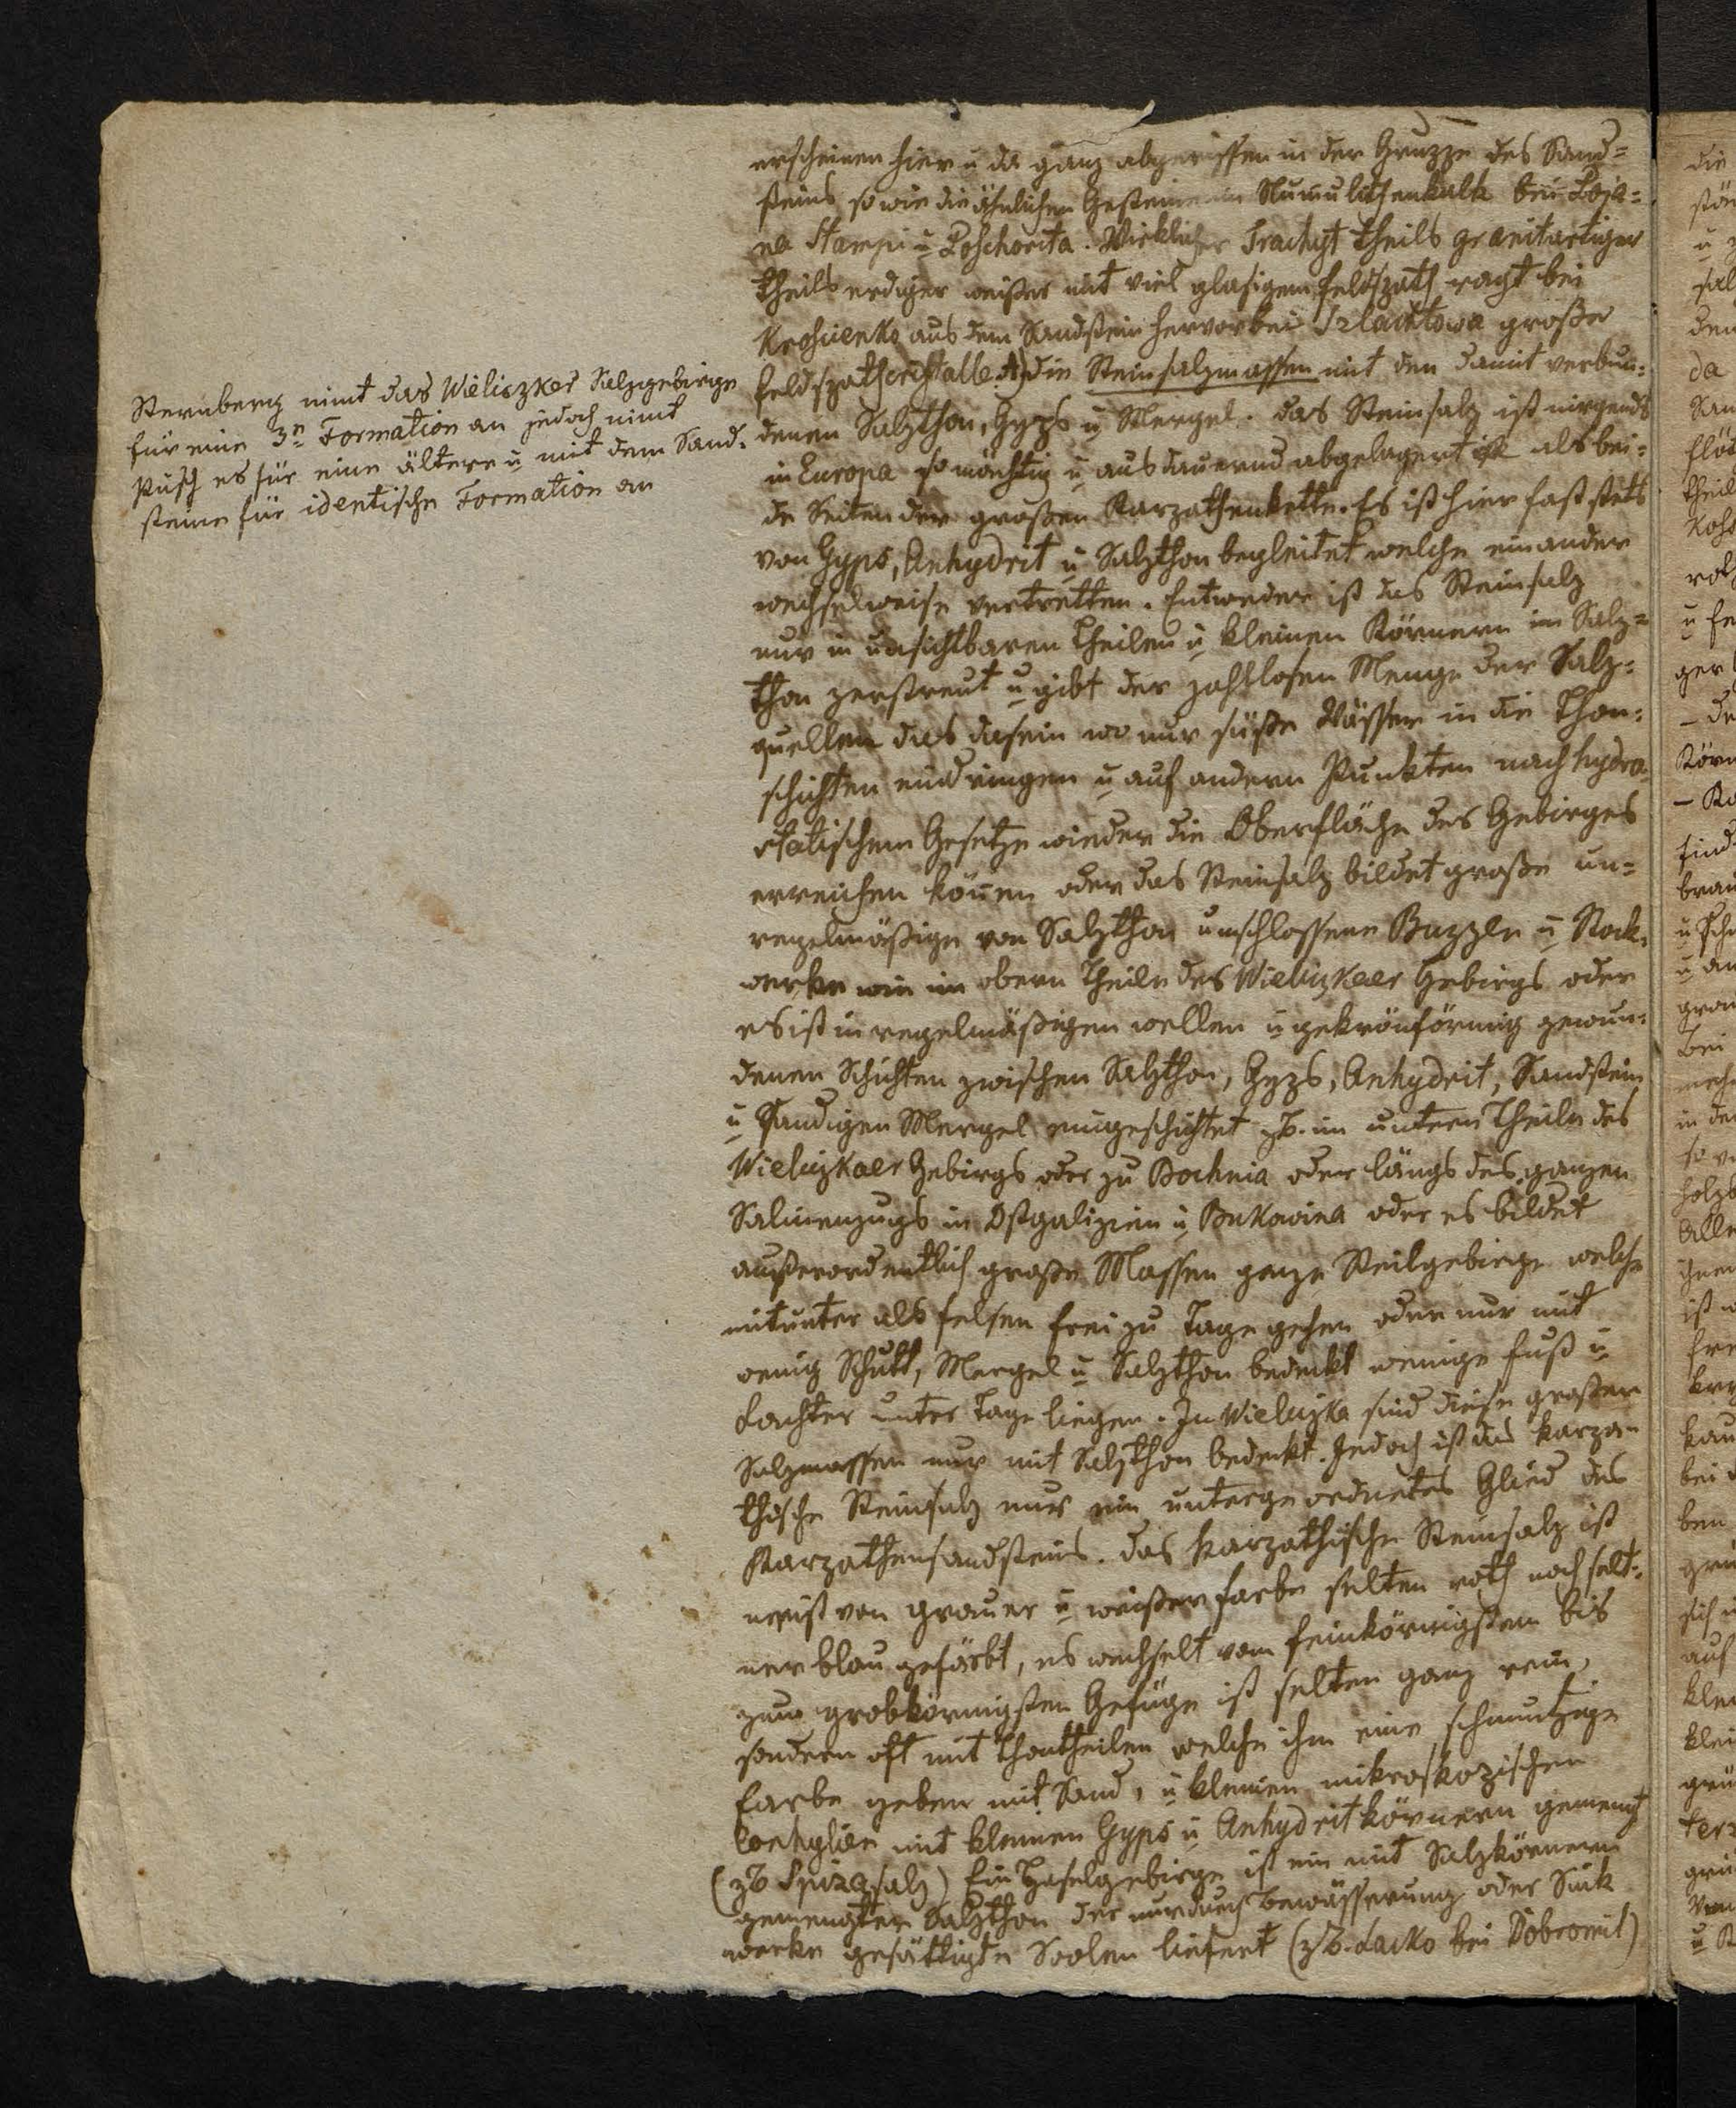 erscheinen hier u da ganz abgerissen in der Gruppe des Sand=
steins so wie die ähnlichen Gesteine im Numulithenkalk bei Poja=
na Stampi u Poschorita. Wirklicher Trachyt theils granitartiger
theils erdiger weißer mit viel glasigem Feldspath ragt bei
Krosienko aus dem Sandstein hervor bei Szlachtowa große
Feldspathcristalle. die Steinsalzmassen mit den damit verbun=
denen Salzthon, Gyps u Mergel. das Steinsalz ist nirgends
in Europa so mächtig u ausdauernd abgelagert ist als bei=
de Seiten der großen Karpathenkette. Es ist hier fast stets
von Gyps, Anhydrit u Salzthon begleitet welche einander
wechselweise vertretten. Entweder ist das Steinsalz
nur in unsichtbaren Theilen u kleinen Körnern im Salz=
thon zerstreut u gibt der zahllosen Menge der Salz=
quellen das dasein wo nur süße Wässer in die Thon=
schichten eindringen u auf andern Punkten nach hydro=
statischem Gesetze wieder die Oberfläche des Gebirges
erreichen könen oder das Steinsalz bildet große un=
regelmäßige von Salzthon umschlossene Buzzen u Stock=
werke wie im obern Theile des Wieliczkaer Gebirgs oder
es ist in regelmäßigen wellen u gekrösförmig gewun=
denen Schichten zwischen Salzthon, Gyps, Anhydrit, Sandstein
u Sandigen Mergel eingeschichtet zB. im untern Theile des
Wieliczkaer Gebirgs oder zu Bochnia oder längs des ganzen
Salinenzugs in Ostgalizien u Bukowina oder es bildet
außerordentlich große Massen ganze Steilgebirge welche
mitunter als Felsen frei zu Tage gehen oder nur mit
wenig Schutt, Mergel u Salzthon bedeckt wenige Fuß u
Lachter unter Tage liegen. In Wieliczka sind diese großen
Salzmassen nur mit Salzthon bedeckt. Jedoch ist das karpa=
thische Steinsalz nur ein untergeordnetes Glied des
Karpathensandsteins. das karpathische Steinsalz ist
meist von grauer u weißer Farbe selten roth noch selt=
ner blau gefärbt, es wechselt vom feinkörnigsten bis
zum grobkörnigsten Gefüge ist selten ganz rein,
sondern oft mit Thontheilen welche ihm eine schmutzige
Farbe geben mit Sand, u kleinen mikroskopischen
Conchylien mit kleinen Gyps u Anhydritkörnern gemengt
(zB Spizasalz) Ein Haselgebirge ist ein mit Salzkörnern
gemengter Salzthon der nur durch Bewässerung oder Sink
werke gesättigte Soolen liefert (zB. Lacko bei Dobromil)
Sternberg nimt das Wieliczker Salzgebirge
für eine 3n Formation an jedoch nimt
Pusch es für eine ältere u mit dem Sand=
steine für identische Formation an